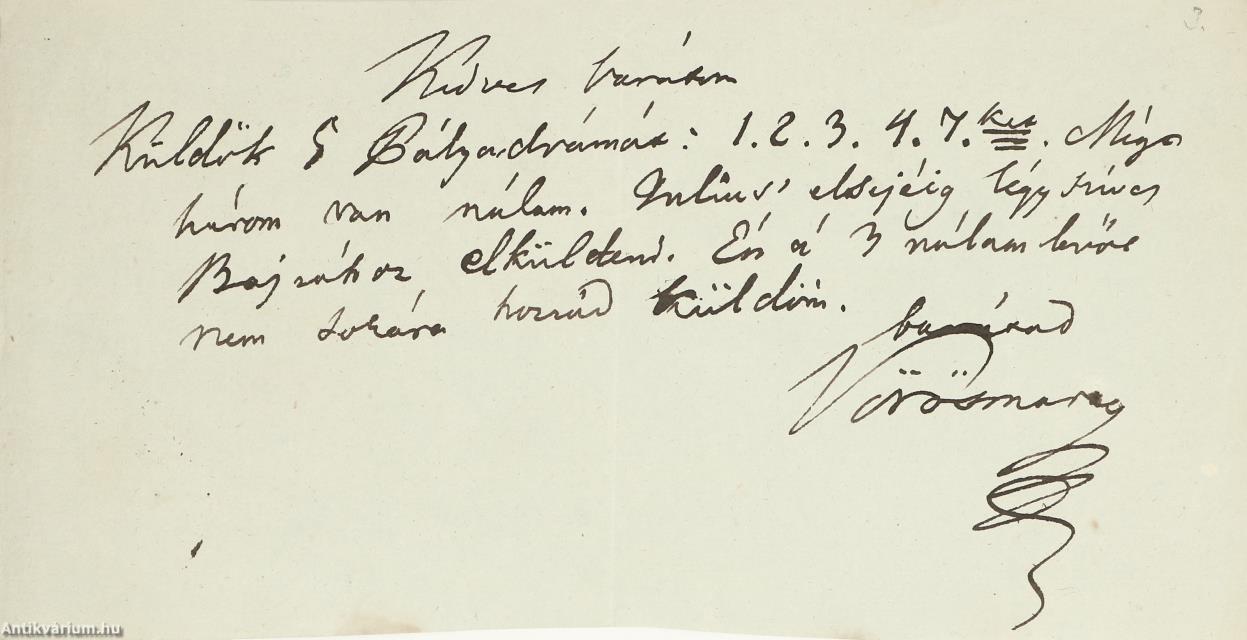 3.
Kedves barátom
Küldök 5 Pályadrámát: 1. 2. 3. 4. 7.ket. Még
három van nálam. Julius' elsejéig légy szíves
Bajzához elküldeni. Én a' 3 nálam levőt
nem sokára hozzád küldöm.
barátod
Vörösmarty
Antikvárium.hu